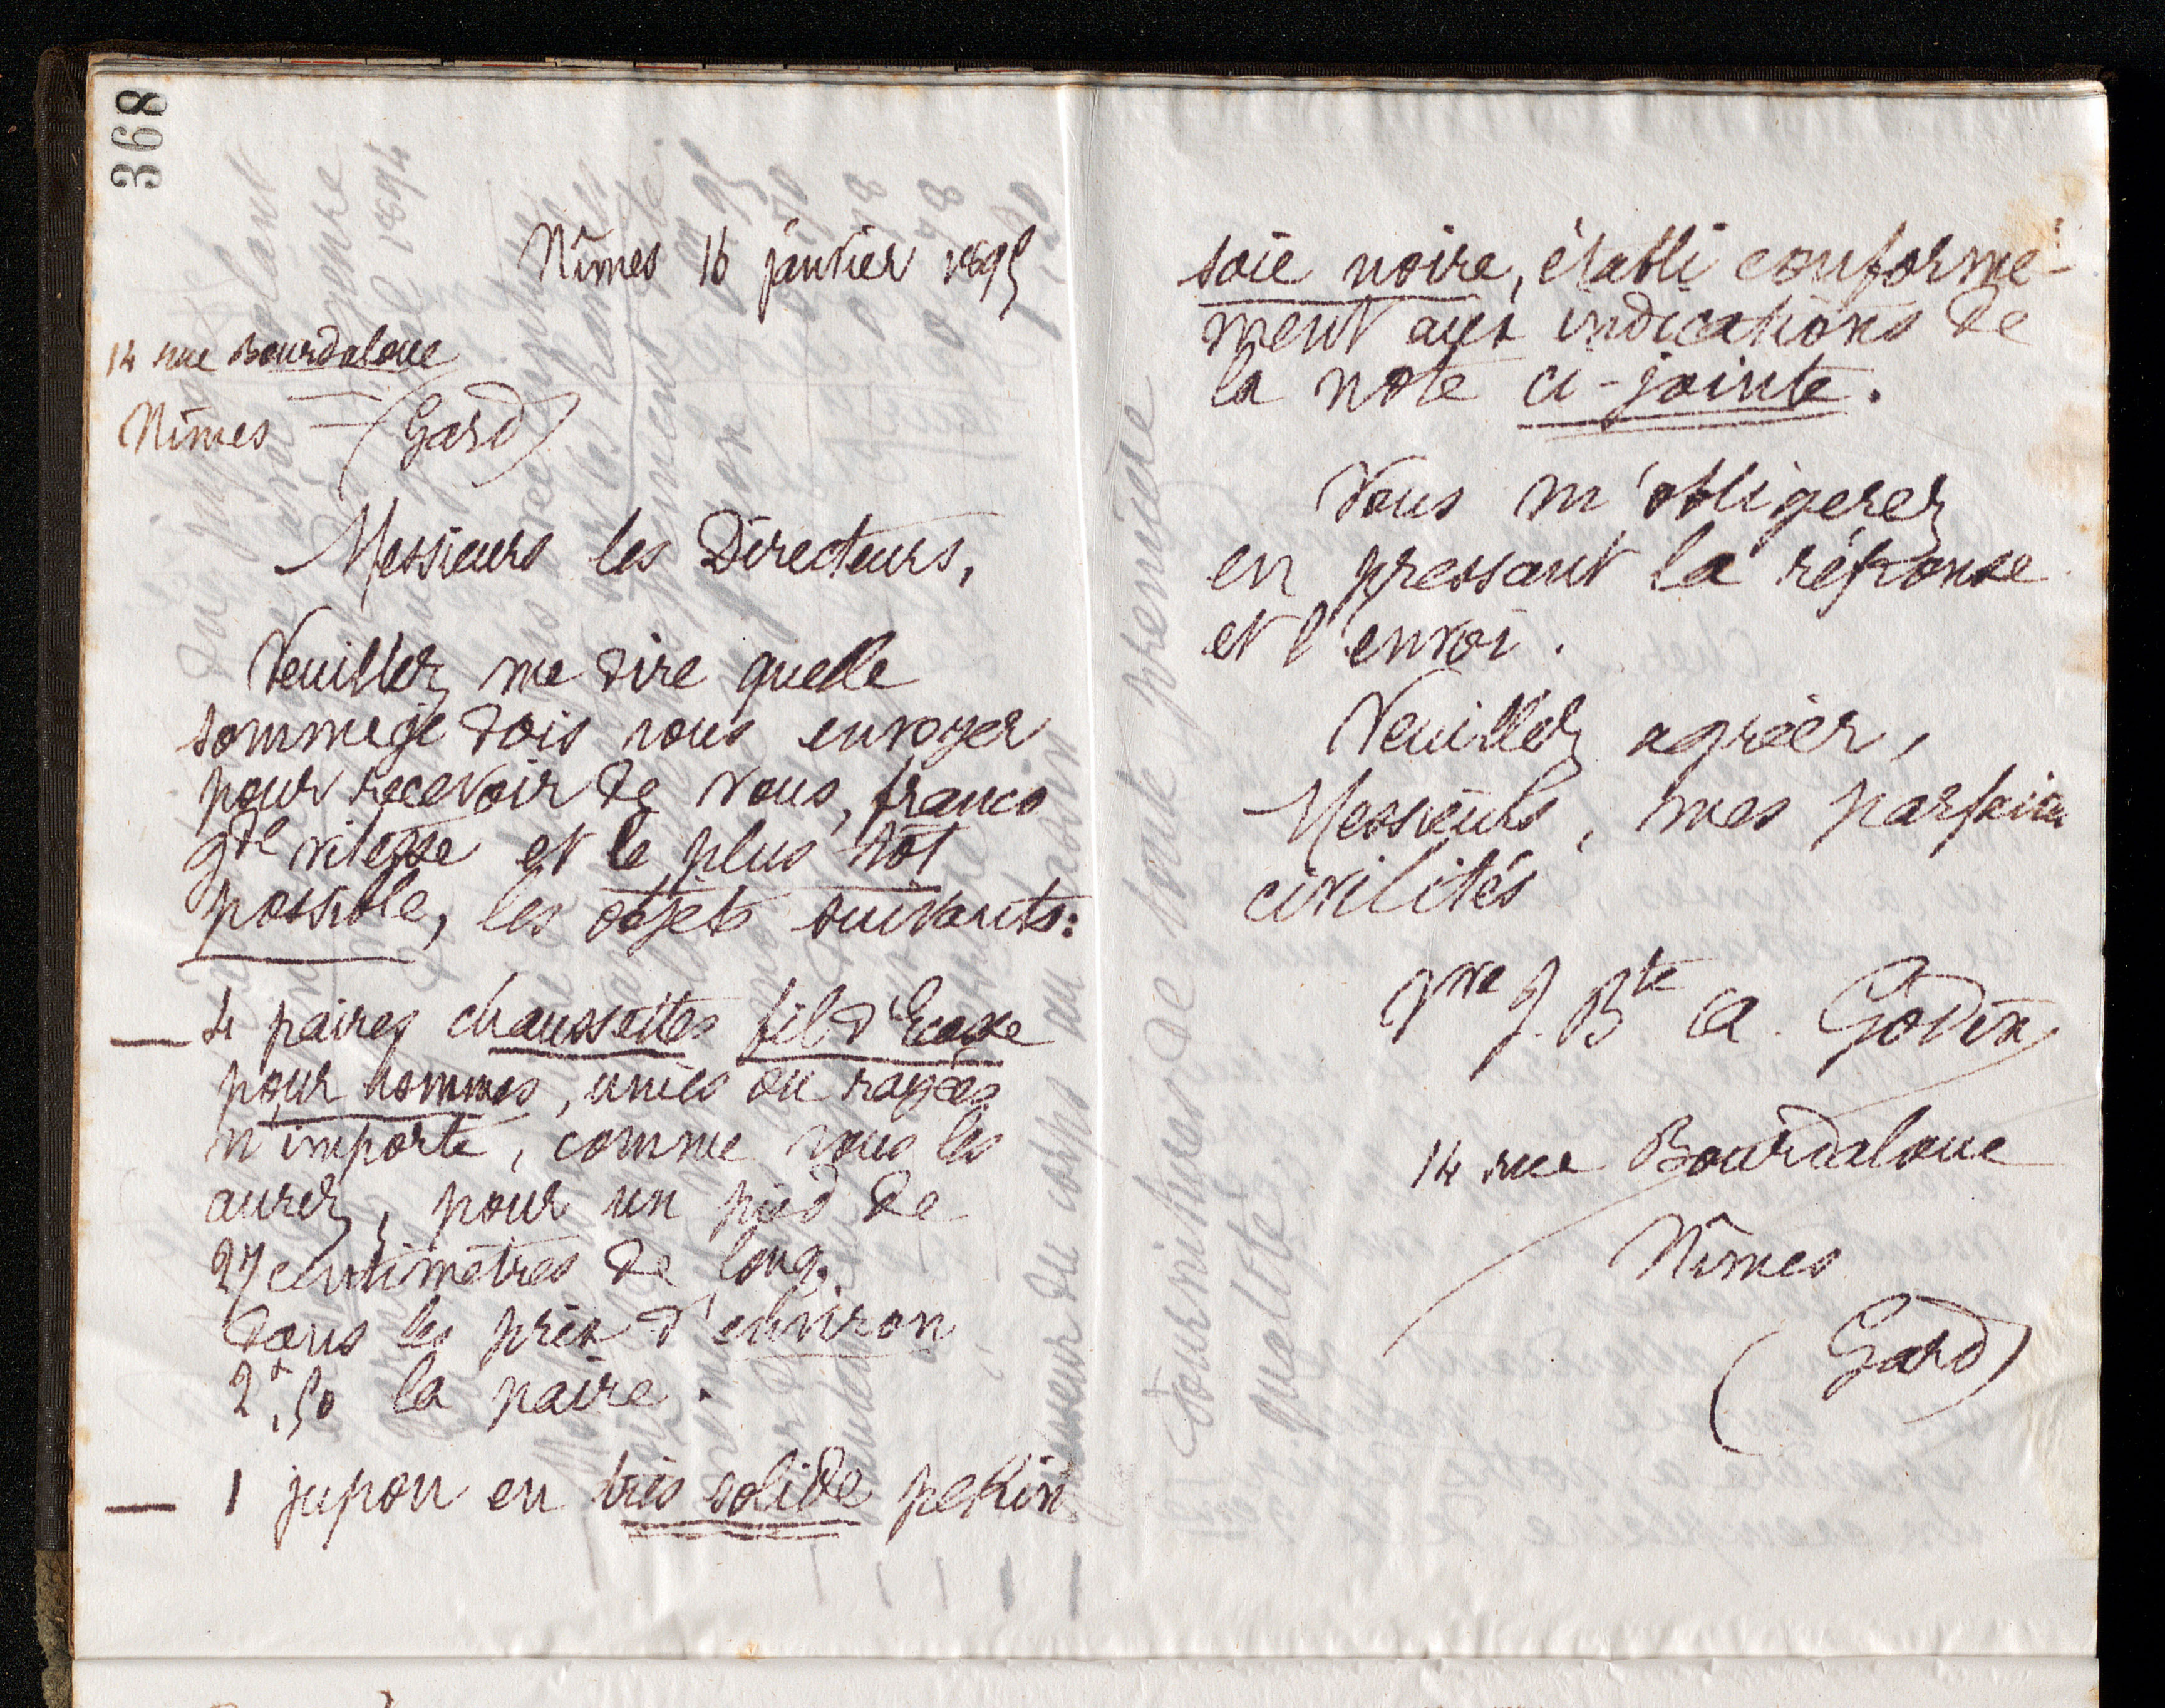 368
Nîmes 16 janvier 1895
14 rue Bourdaloue
Nîmes (Gard)
Messieurs les Directeurs,
Veuillez me dire quelle
somme je dois vous envoyer
pour recevoir de vous, franco
gde vitesse et le plus tôt
possible, les objets suivants:
— 4 paires chaussettes fil d'Ecosse
pour hommes, unies ou rayées
n'importe, comme vous les
aurez, pour un pied de
27 centimètres de long.
dans les prix d'environ
2f,50 la paire.
— 1 jupon en très solide pekin
soie noire, établi conformé-
ment aux indications de
la note ci-jointe.
Vous m'obligerez
en pressant la réponse
et l'envoi.
Veuillez agréer,
Messieurs, mes parfaites
civilités
Vve J. Bte A. Godin
14 rue Bourdaloue
Nîmes
(Gard)